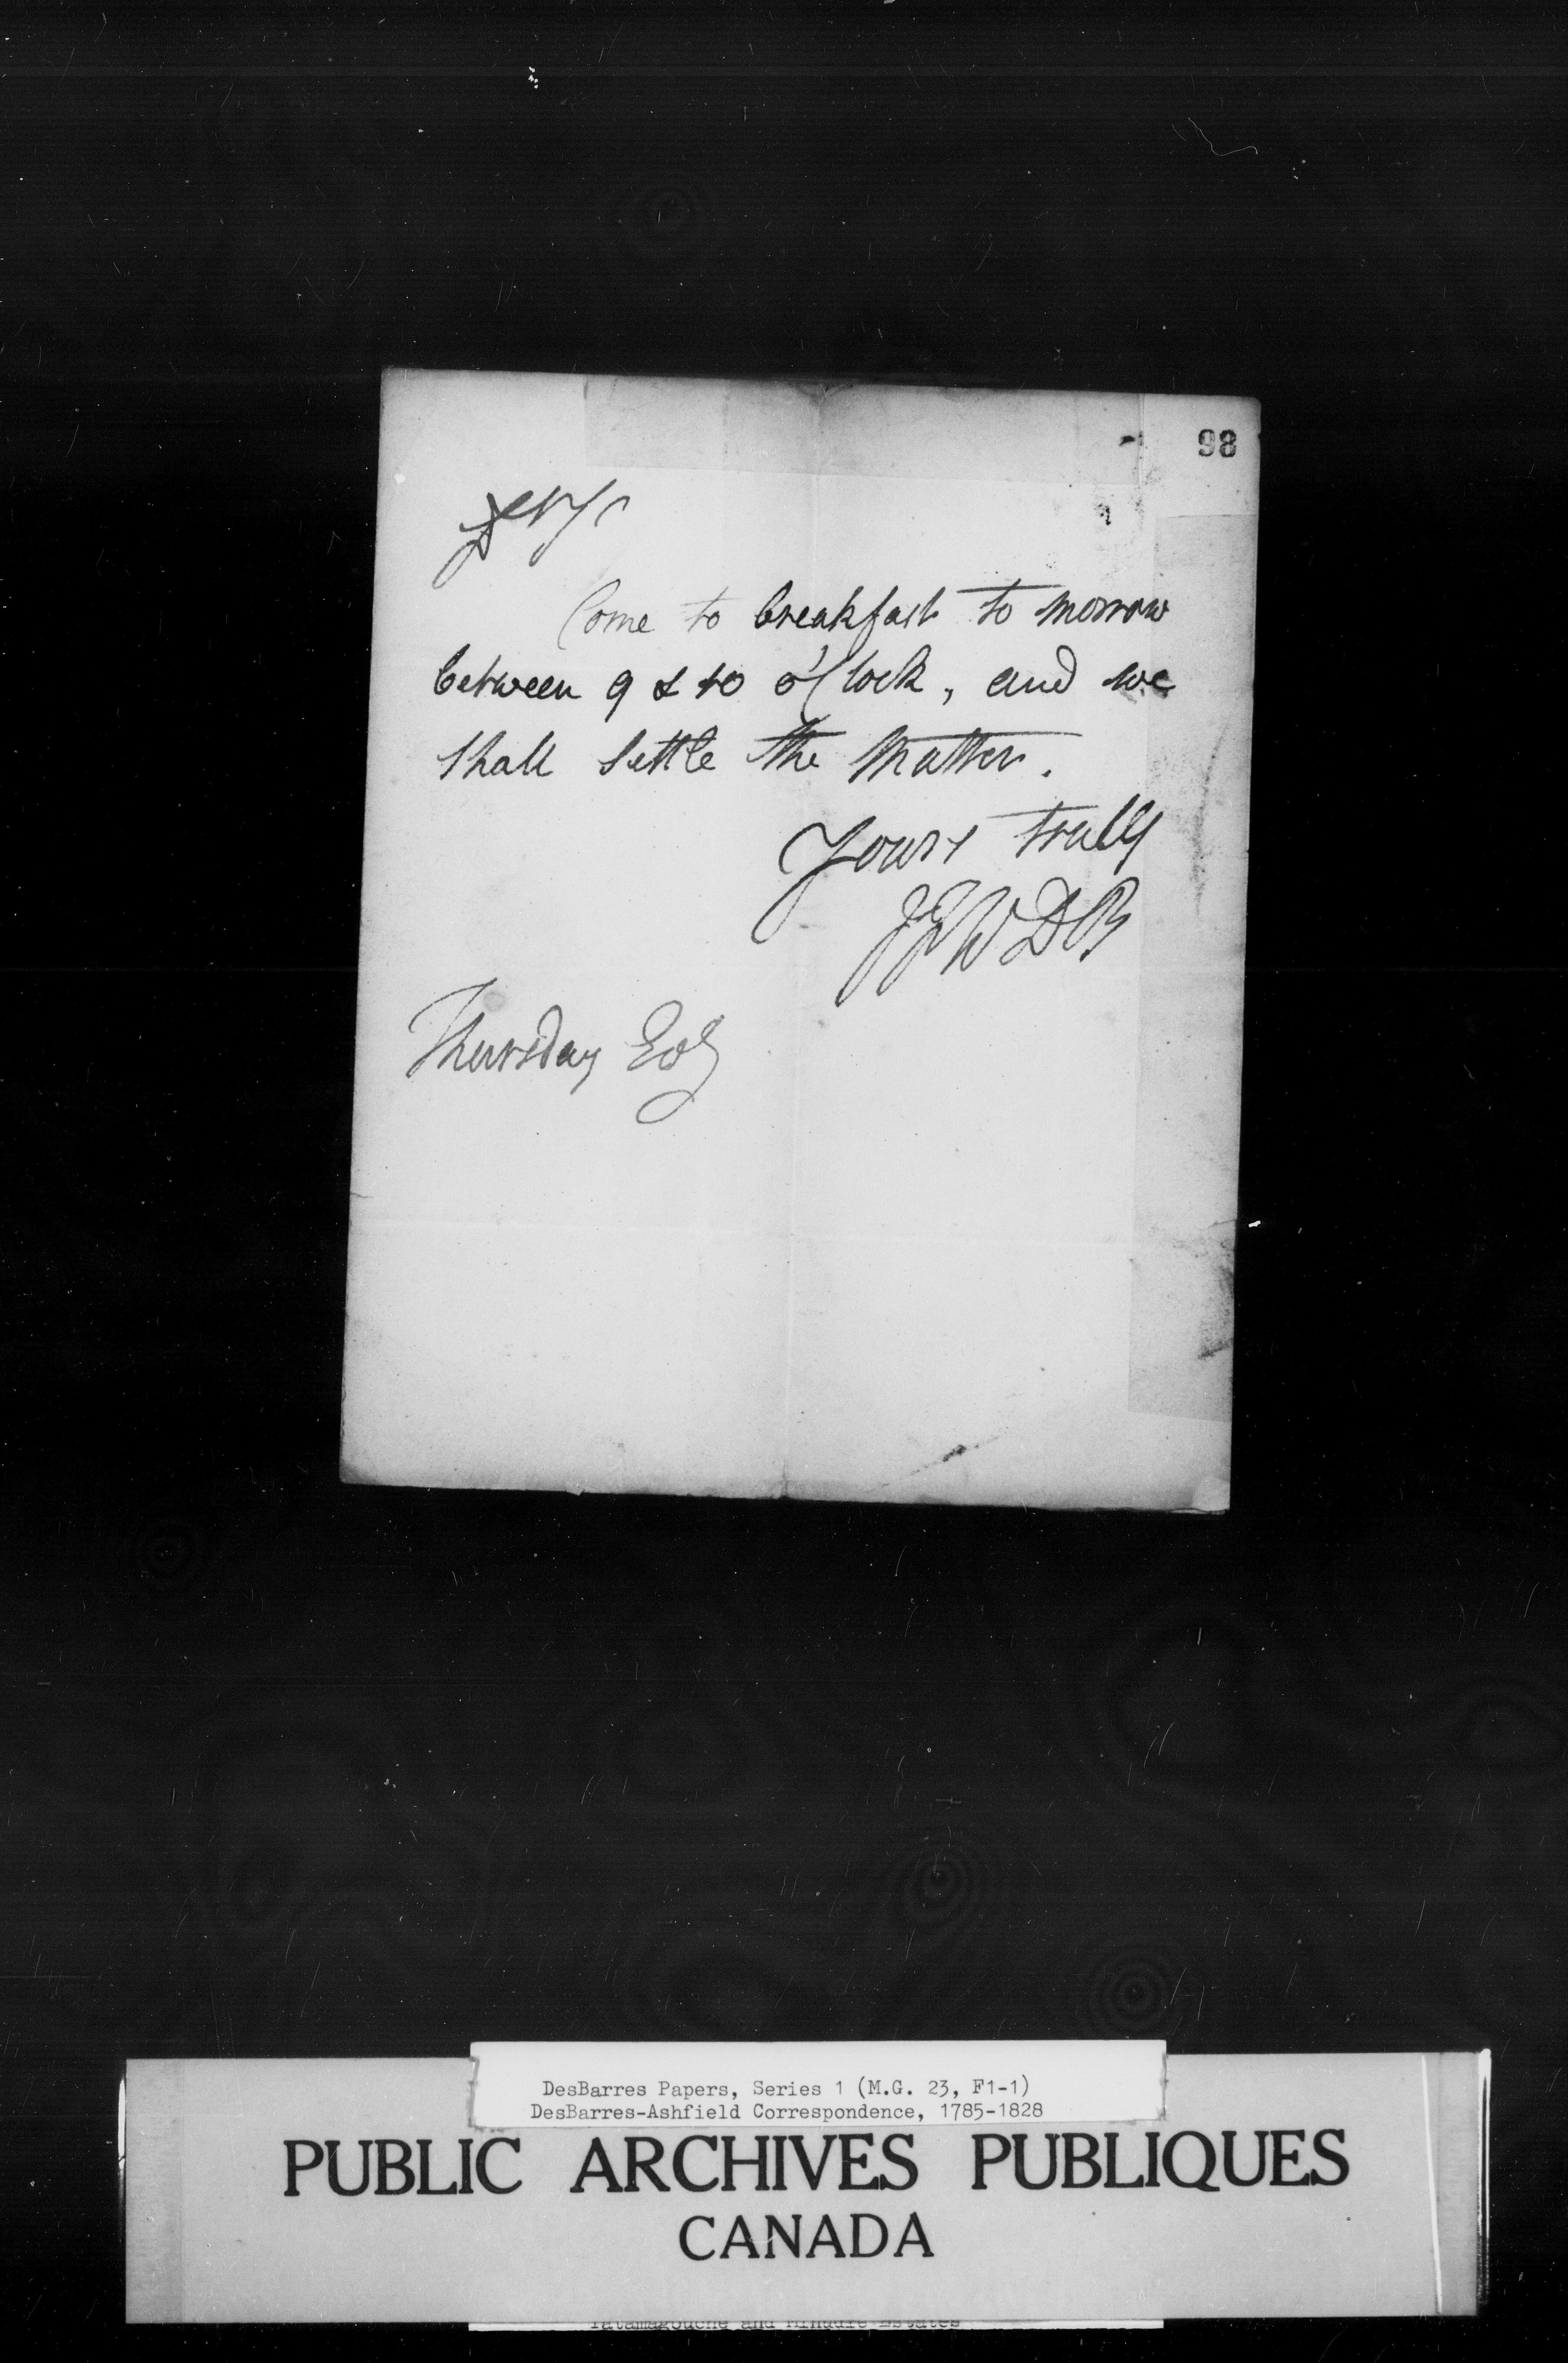 98
Dr Sr
Come to breakfast to morrow
between 9 & 10 o'Clock, and we
shall settle the matter.
Yours truly
JFWDB
Thursday Evg
DesBarres Papers, Series 1 (M.G. 23, F1-1)
DesBarres-Ashfield Correspondence, 1785-1828
PUBLIC ARCHIVES PUBLIQUES
CANADA
Tatamagouche and Minudie Estates